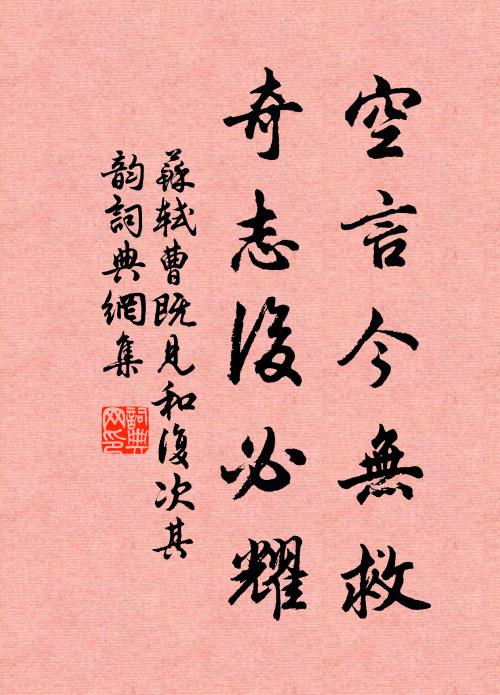 空言今無救
奇志後必耀
蘇軾曹既見和復次其
韵詞典網集
詞典网印